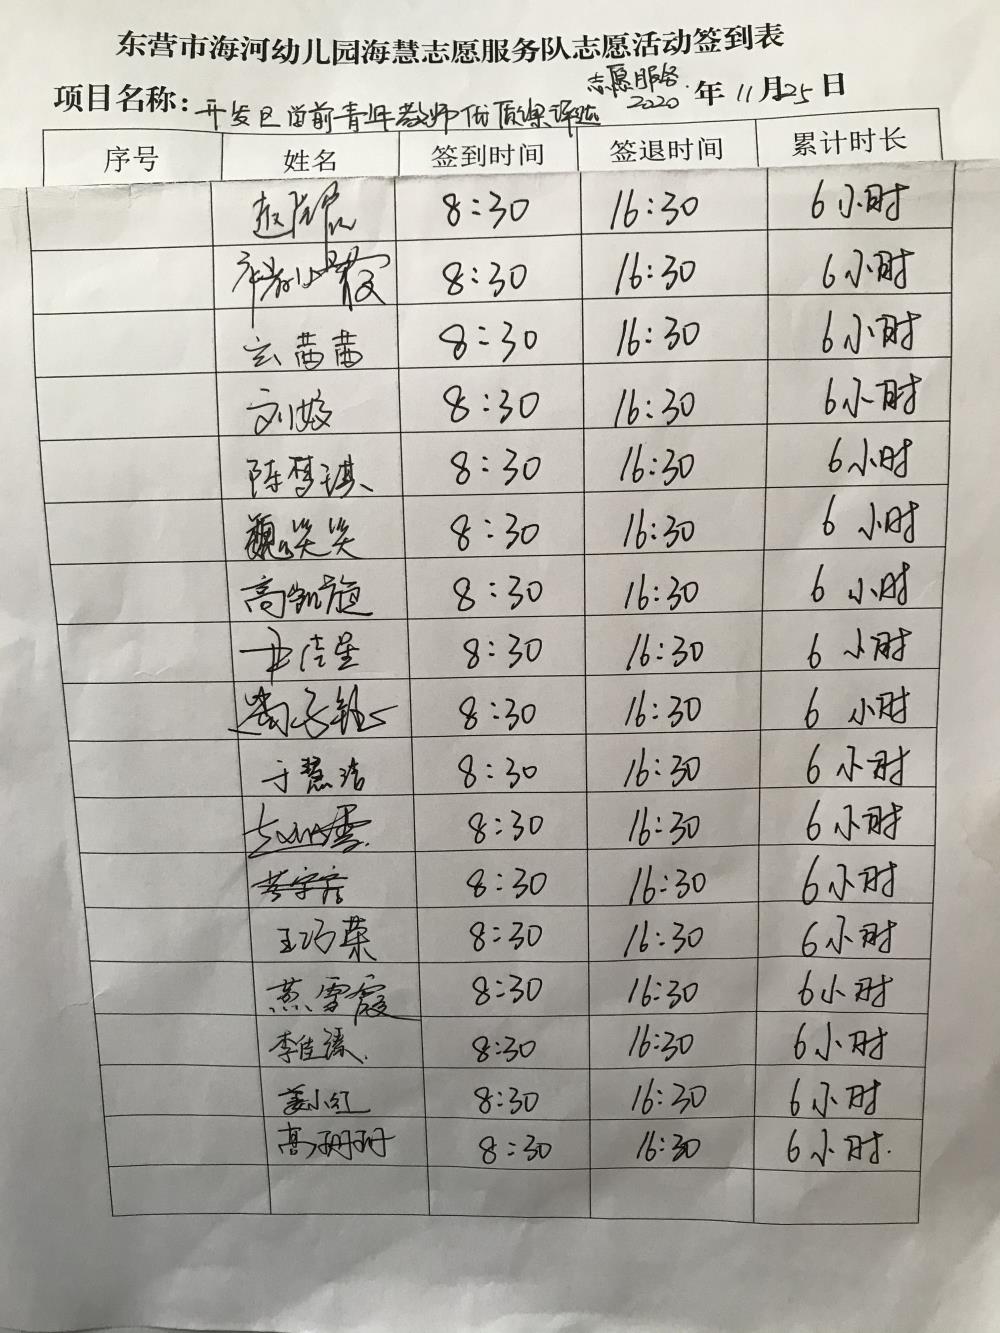 东营市海河幼儿园海慧志愿服务队志愿活动签到表
项目名称：开发区学前青年教师优质课评选志愿服务 2020 年 11 月 25 日
序号 姓名 签到时间 签退时间 累计时长
8:30 16:30 6小时
8:30 16:30 6小时
玄茜茜 8:30 16:30 6小时
刘姣 8:30 16:30 6小时
陈梦琪 8:30 16:30 6小时
魏笑笑 8:30 16:30 6小时
高凯旋 8:30 16:30 6小时
8:30 16:30 6小时
8:30 16:30 6小时
于慧洁 8:30 16:30 6小时
8:30 16:30 6小时
8:30 16:30 6小时
王巧荣 8:30 16:30 6小时
燕雪霞 8:30 16:30 6小时
李佳臻 8:30 16:30 6小时
姜小红 8:30 16:30 6小时
高珊珊 8:30 16:30 6小时.